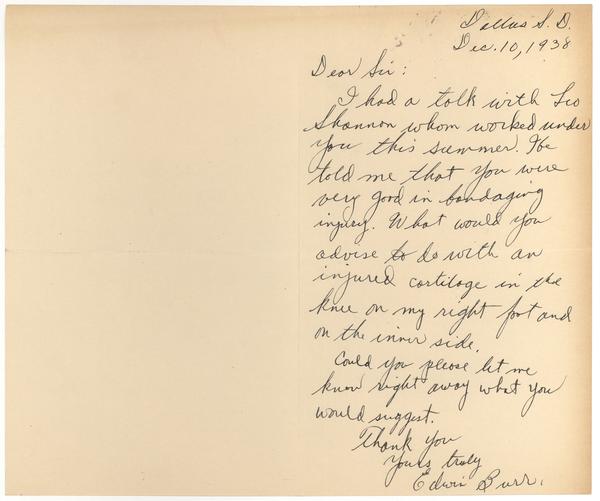 Dallas S. D.
Dec. 10, 1938
Dear Sir:
I had a talk with Leo
Shannon whom worked under
you this summer. He
told me that you were
very good in bandaging
injury. What would you
advise to do with an
injured cartiloge in the
knee on my right foot and
on the inner side.
Could you please let me
know right away what you
would suggest.
Thank you
Yours truly
Edwin Burr.